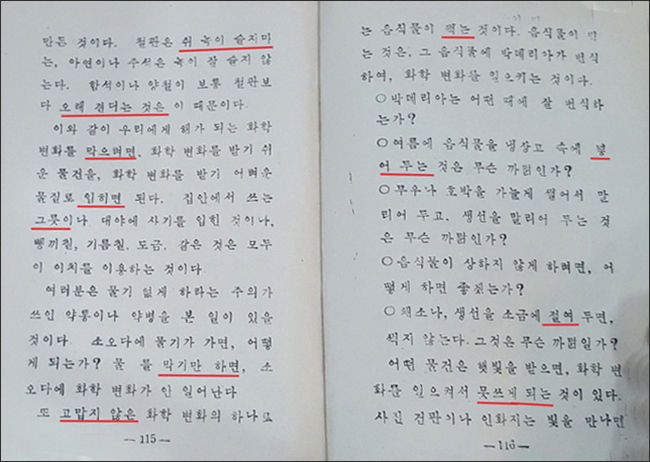 만든 것이다. 철판은 쉬 녹이 슬지마
는, 아연이나 주석은 녹이 잘 슬지 않
는다. 함석이나 양철이 보통 철판보
다 오래 견디는 것은 이 때문이다.
이와 같이 우리에게 해가 되는 화학
변화를 막으려면, 화학 변화를 받기 쉬
운 물건을, 화학 변화를 받기 어려운
물질로 입히면 된다. 집안에서 쓰는
그릇이나 대야에 사기를 입힌 것이나,
뺑끼칠, 기름칠, 도금, 같은 것은 모두
이 이치를 이용하는 것이다.
여러분은 물기 없게 하라는 주의가
쓰인 약통이나 약병을 본 일이 있을
것이다. 소오다에 물기가 가면, 어떻
게 되는가? 물 를 막기만 하면, 소
오다에 화학 변화가 안 일어난다
또 고맙지 않은 화학 변화의 하나로
— 115 —
는 음식물이 썩는 것이다. 음식물이 썩
는 것은, 그 음식물에 박데리아가 번식
하여, 화학 변화를 일으키는 것이다.
○박데리아는 어떤 때에 잘 번식하
는가?
○여름에 음식물을 냉장고 속에 넣
어 두는 것은 무슨 까닭인가?
○무우나 호박을 가늘게 썰어서 말
리어 두고, 생선을 말리어 두는 것
은 무슨 까닭인가?
○음식물이 상하지 않게 하려면, 어
떻게 하면 좋겠는가?
○채소나, 생선을 소금에 절여 두면,
썩지 않는다. 그것은 무슨 까닭일가?
어떤 물건은 햇빛을 받으면, 화학 변
화를 일으켜서 못쓰게 되는 것이 있다.
사진 건판이나 인화지는 빛을 만나면
— 116 —